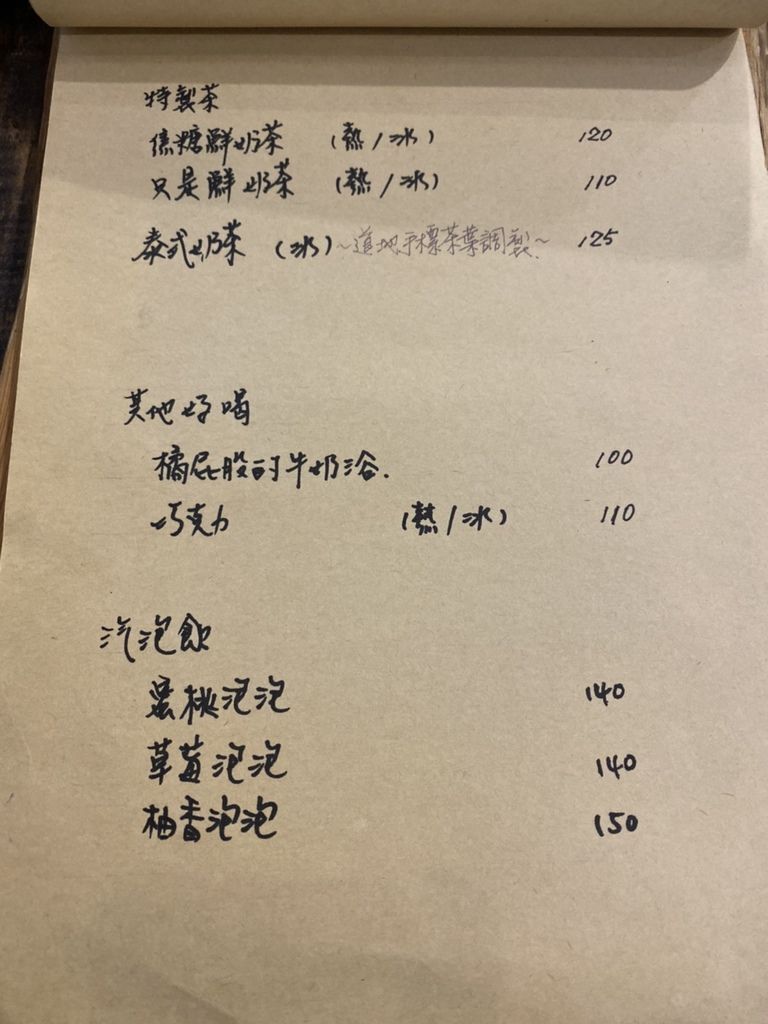 特製茶
焦糖鮮奶茶 (熱/冰) 120
只是鮮奶茶 (熱/冰) 110
泰式奶茶 (冰) ~道地手標茶葉調製~ 125
其他好喝
橘屁股的牛奶浴. 100
巧克力 (熱/冰) 110
汽泡飲
蜜桃泡泡 140
草莓泡泡 140
柚香泡泡 150